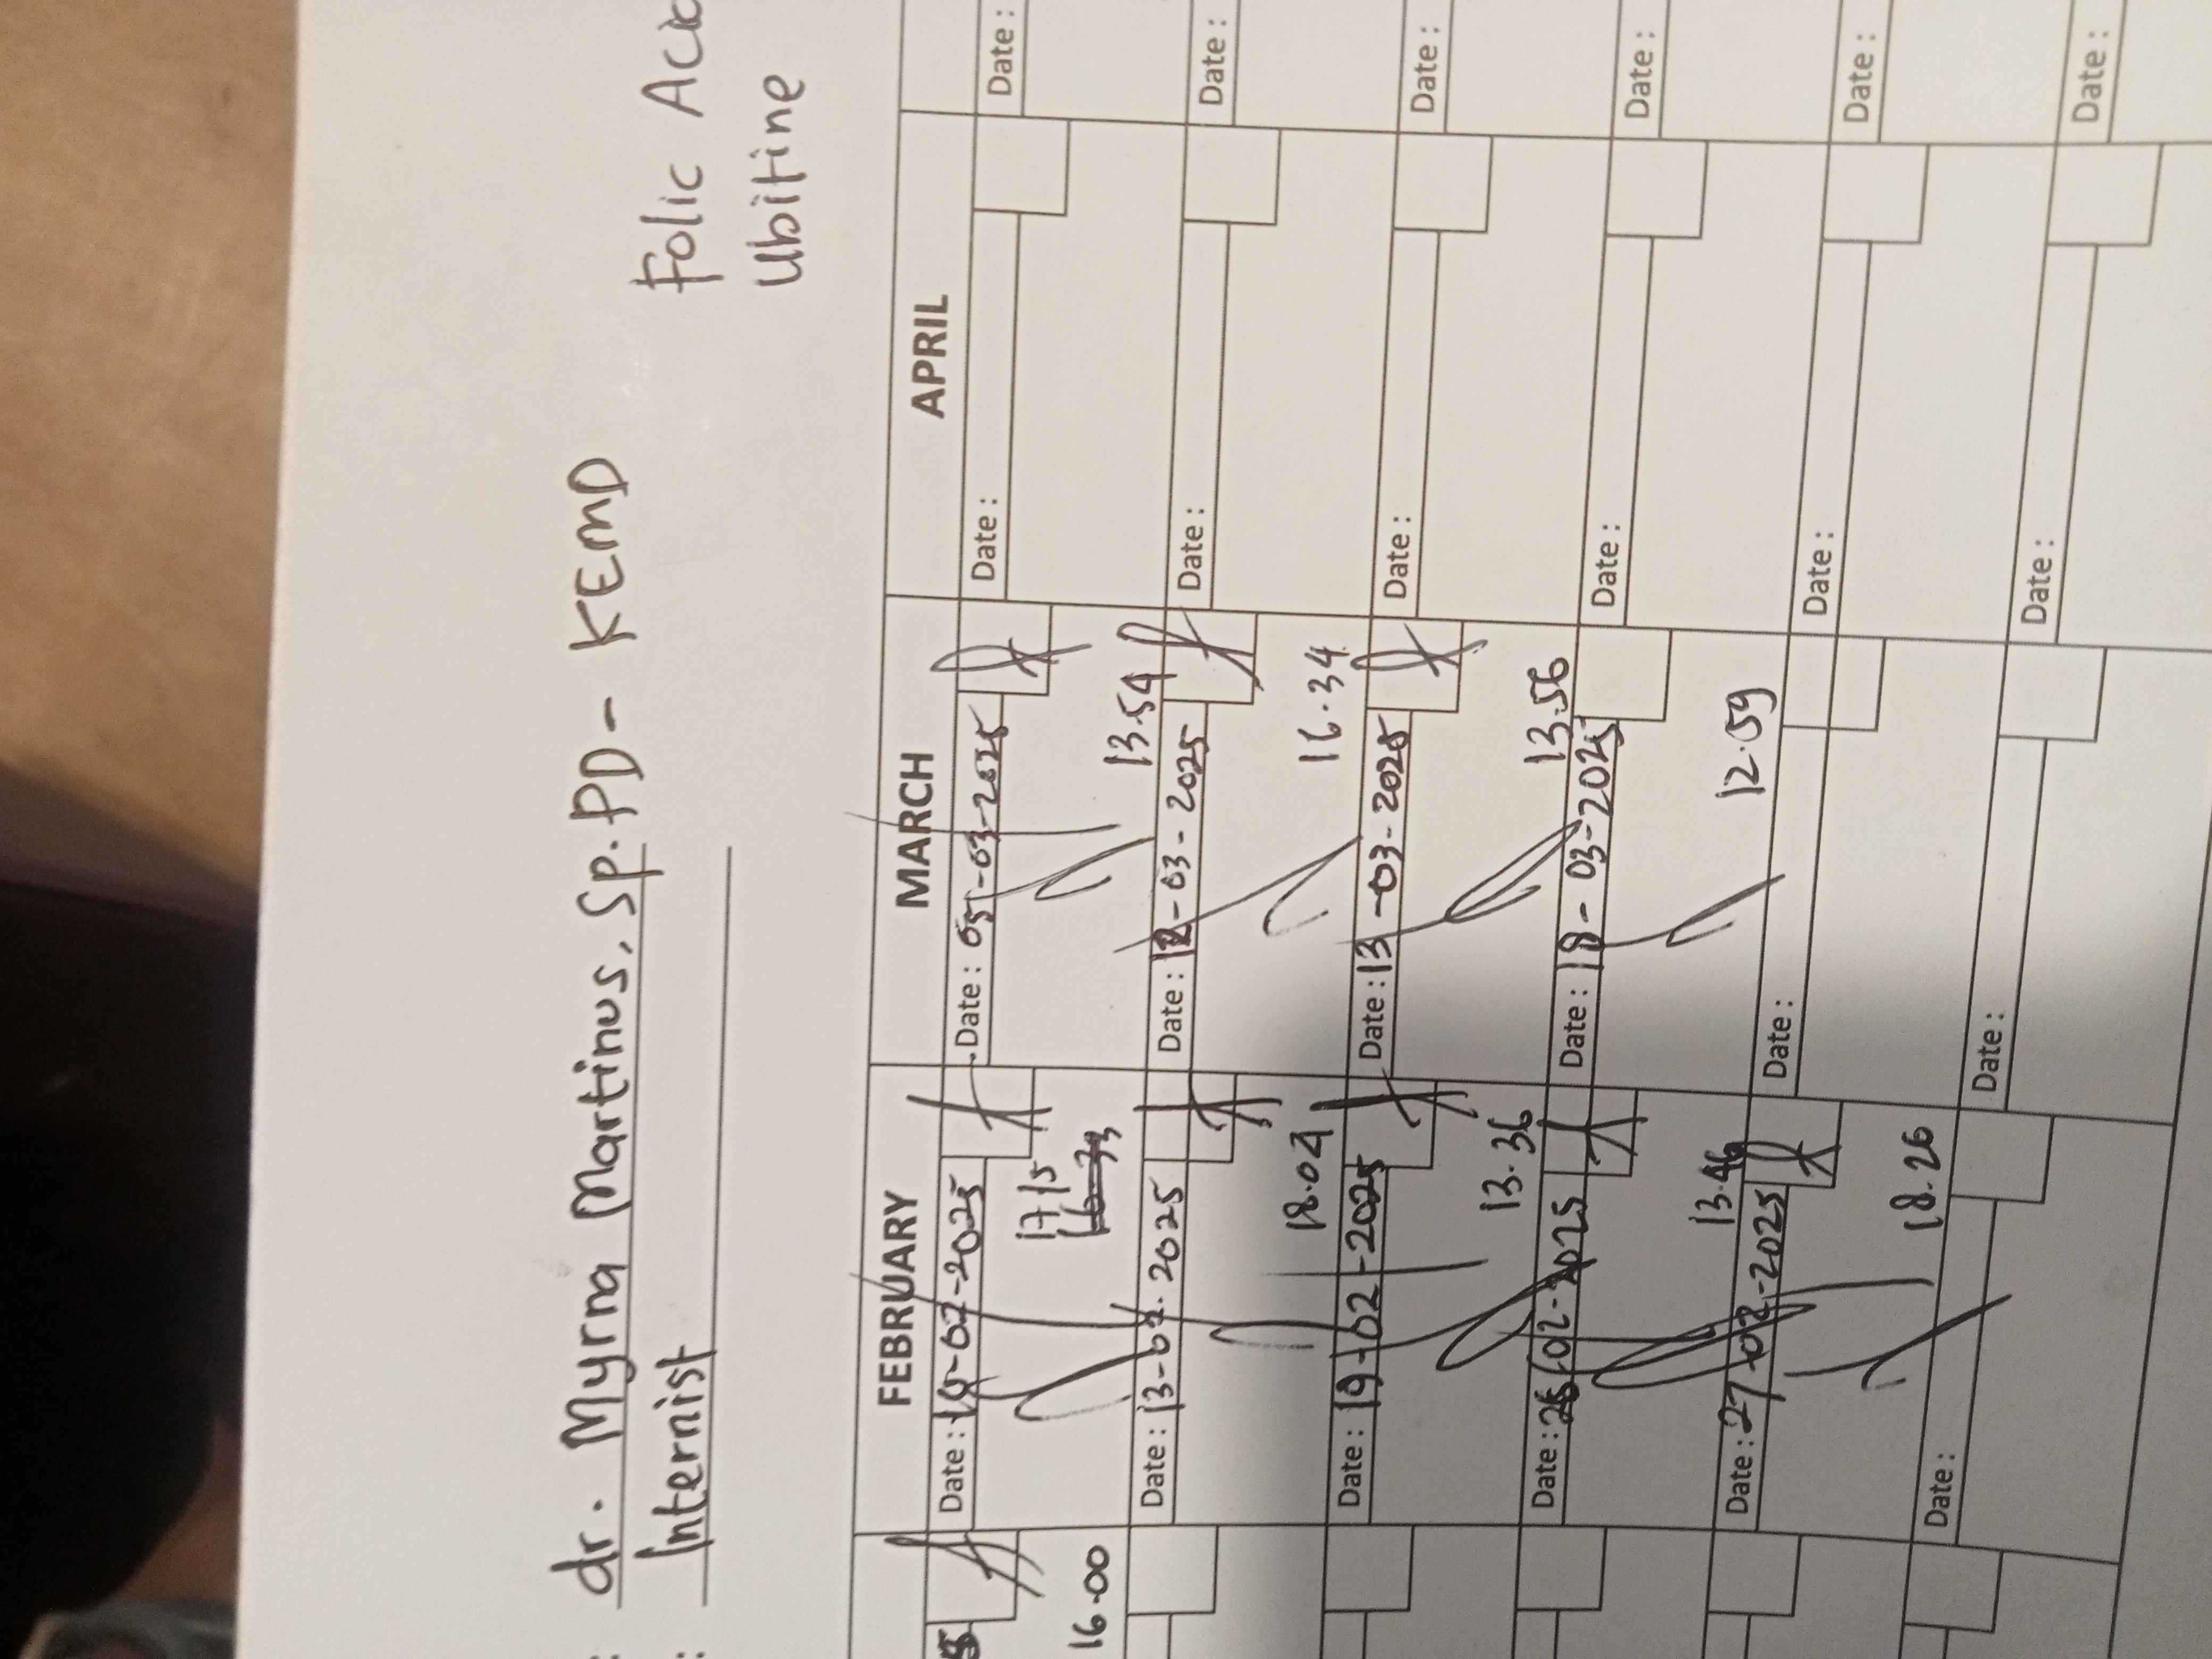 : dr. Myrna Martinus, Sp.PD - KEMD
: Internist
Folic
Ubitine
FEBRUARY MARCH APRIL
Date : -02-2025
17 15
Date : 05-03-2025
13.54
Date :
Date :
16.00
Date : 13-02.2025
18.04
Date : 12-03-2025
16.34
Date :
Date :
Date : 19-02-2025
13.36
Date : 13-03-2025
13.56
Date :
Date :
Date : 26-02-2025
13.46
Date : 18-03-2025
12.59
Date :
Date :
Date : 27-02-2025
18.26
Date :
Date :
Date :
Date :
Date :
Date :
Date :